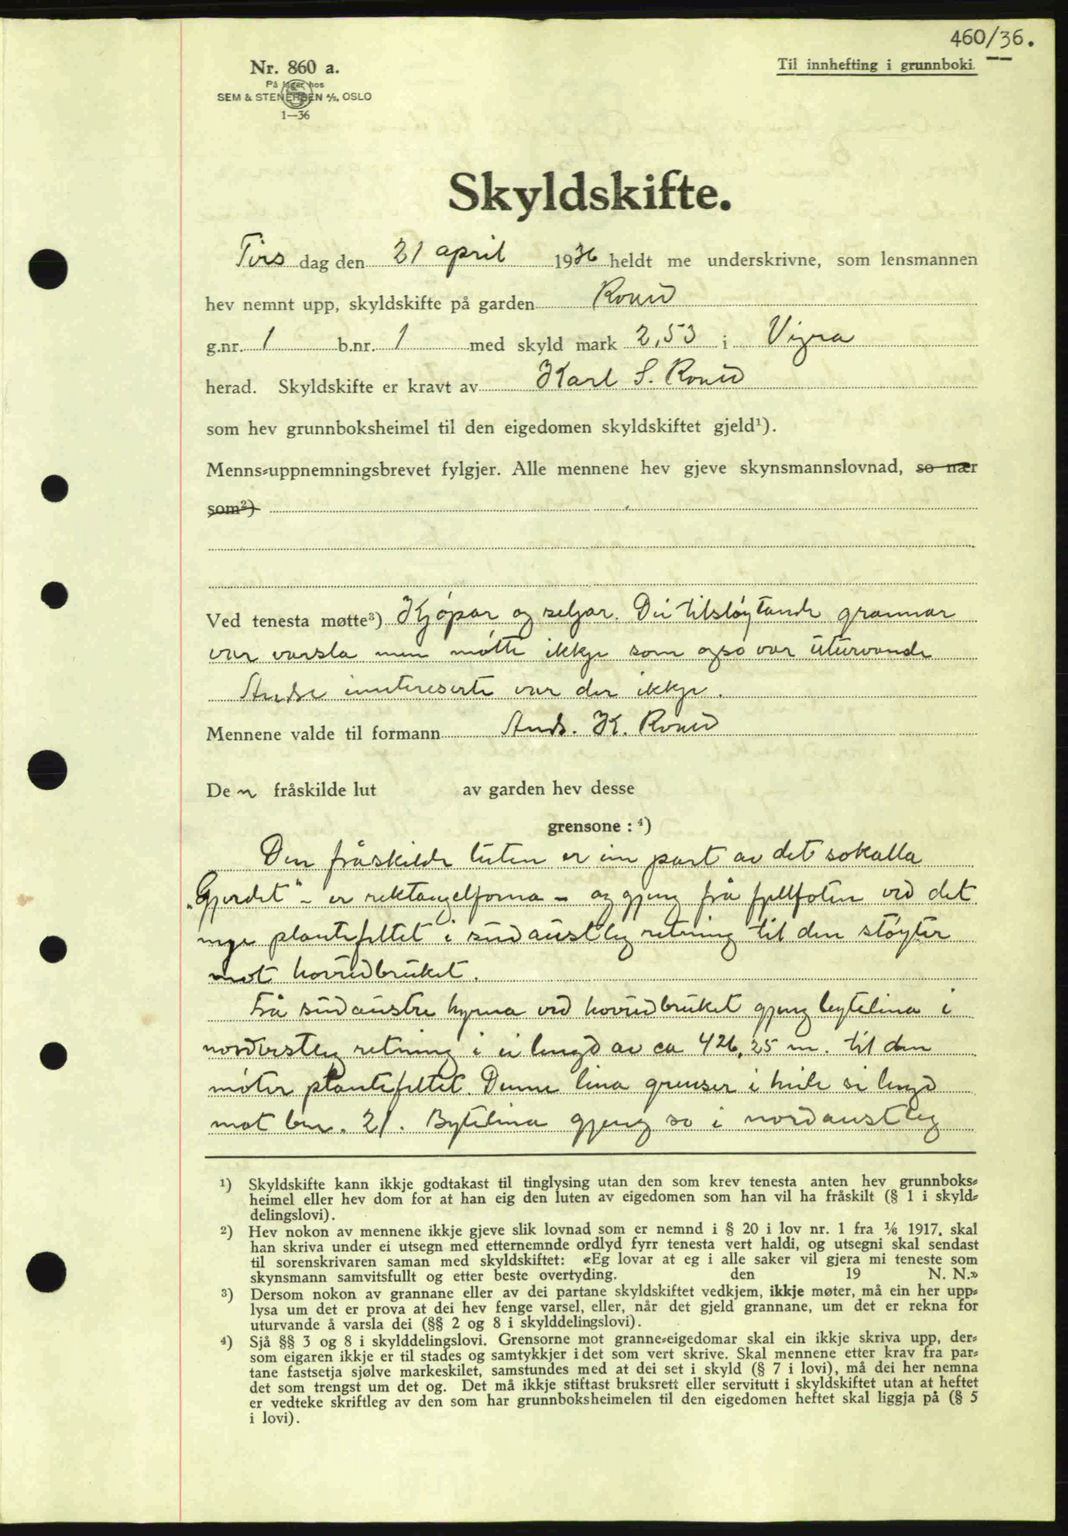 460/36.
Nr. 860 a.
Til innhefting i grunnboki.
På lager hos
SEM & STENERSEN A/S, OSLO
1—36
Skyldskifte.
Tirs dag den 21 april 1936 heldt me underskrivne, som lensmannen
hev nemnt upp, skyldskifte på garden Roald
g.nr. 1 b.nr. 1 med skyld mark 2,53 i Vigra
herad. Skyldskifte er kravt av Karl S. Roald
som hev grunnboksheimel til den eigedomen skyldskiftet gjeld¹).
Menns-uppnemningsbrevet fylgjer. Alle mennene hev gjeve skynsmannslovnad, so nær
som²)
Ved tenesta møtte³) Kjøpar og seljar. Dei tilstøytande grannar
var varsla men møtte ikkje som også var uturvande
Andre inntereserte var der ikkje.
Mennene valde til formann Ands. K. Roald
Den fråskilde lut av garden hev desse
grensone: ⁴)
Den fråskilde luten er ein part av det sokalla
„Gjerdet" - er rektangelforma - og gjeng frå fjellfoten ved det
nye plantefeltet i sudaustleg retning til den støyter
mot hovudbruket.
Frå sudaustre hyrna ved hovudbruket gjeng bytelina i
nordvestleg retning i ei lengd av ca 426,25 m. til den
møter plantefeltet. Denne lina grenser i heile si lengd
mot bnr. 21. Bytelina gjeng so i nordaustleg
¹) Skyldskifte kann ikkje godtakast til tinglysing utan den som krev tenesta anten hev grunnboks-
heimel eller hev dom for at han eig den luten av eigedomen som han vil ha fråskilt (§ 1 i skyld-
delingslovi).
²) Hev nokon av mennene ikkje gjeve slik lovnad som er nemnd i § 20 i lov nr. 1 fra 1/6 1917, skal
han skriva under ei utsegn med etternemnde ordlyd fyrr tenesta vert haldi, og utsegni skal sendast
til sorenskrivaren saman med skyldskiftet: «Eg lovar at eg i alle saker vil gjera mi teneste som
skynsmann samvitsfullt og etter beste overtyding. den 19 N. N.»
³) Dersom nokon av grannane eller av dei partane skyldskiftet vedkjem, ikkje møter, må ein her upp-
lysa um det er prova at dei hev fenge varsel, eller, når det gjeld grannane, um det er rekna for
uturvande å varsla dei (§§ 2 og 8 i skylddelingslovi).
⁴) Sjå §§ 3 og 8 i skylddelingslovi. Grensorne mot granne-eigedomar skal ein ikkje skriva upp, der-
som eigaren ikkje er til stades og samtykkjer i det som vert skrive. Skal mennene etter krav fra par-
tane fastsetja sjølve markeskilet, samstundes med at dei set i skyld (§ 7 i lovi), må dei her nemna
det som trengst um det og. Det må ikkje stiftast bruksrett eller servitutt i skyldskiftet utan at heftet
er vedteke skriftleg av den som har grunnboksheimelen til den eigedomen heftet skal liggja på (§ 5
i lovi).